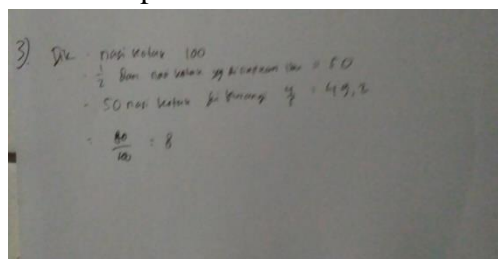 3) Dik - nasi kotak 100
- 1/2 dari nasi kotak yg di = 50
- 50 nasi kotak di kurangi 4/5 = 49,2
= 80/100 = 8